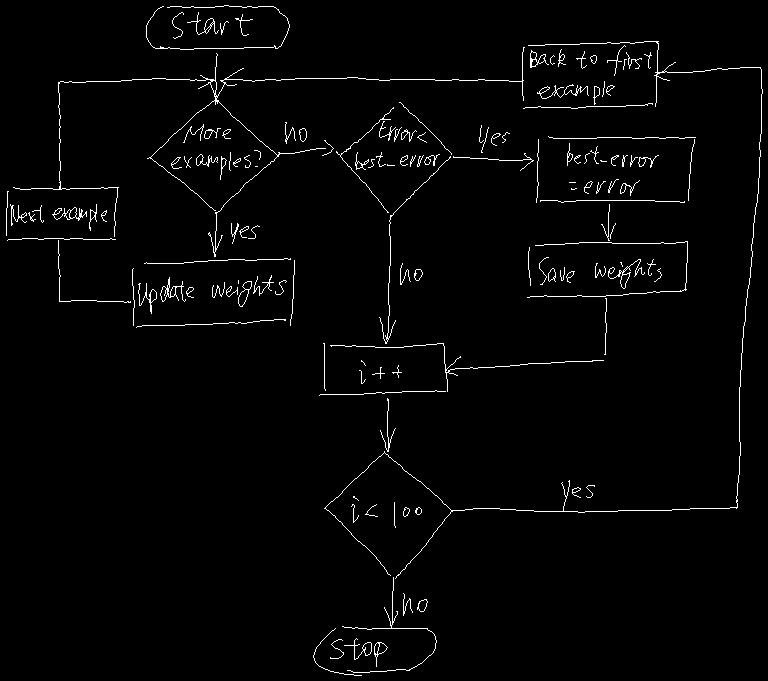 Start
Back to first
example
More
examples?
no
Error<
best_error
yes
best_error
=error
Next example
yes
Update weights
no
Save weights
i++
i< 100
yes
no
Stop